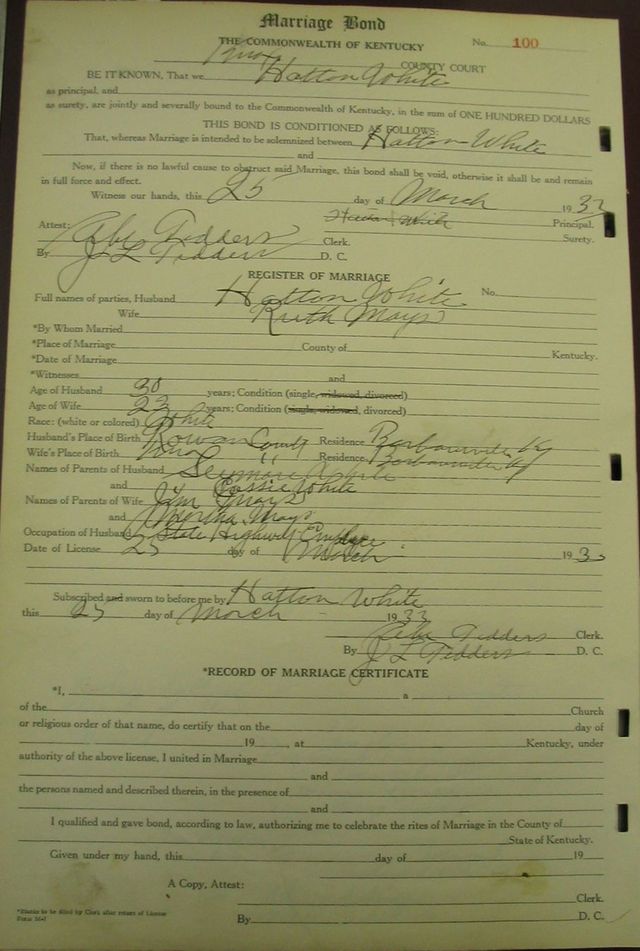 Marriage Bond
THE COMMONWEALTH OF KENTUCKY No. 100
Knox COUNTY COURT
BE IT KNOWN, That we Hatton White
as principal, and
as surety, are jointly and severally bound to the Commonwealth of Kentucky, in the sum of ONE HUNDRED DOLLARS
THIS BOND IS CONDITIONED AS FOLLOWS:
That, whereas Marriage is intended to be solemnized between Hatton White
and
Now, if there is no lawful cause to obstruct said Marriage, this bond shall be void, otherwise it shall be and remain
in full force and effect.
Witness our hands, this 25 day of March 1933
Hatton White Principal.
Attest: Surety.
Abe Tedders Clerk.
By J L Tedders D. C.
REGISTER OF MARRIAGE
Full names of parties, Husband Hatton White No.
Wife Ruth Mays
*By Whom Married
*Place of Marriage County of Kentucky.
*Date of Marriage
*Witnesses and
Age of Husband 30 years; Condition (single, widowed, divorced)
Age of Wife 23 years; Condition (single, widowed, divorced)
Race: (white or colored) White
Husband's Place of Birth Rowan County Residence Barbourville Ky
Wife's Place of Birth Knox " Residence Barbourville Ky
Names of Parents of Husband White
and Cassie White
Names of Parents of Wife Jim Mays
and Martha Mays
Occupation of Husband State Highway Employee
Date of License 25 day of March 193
Subscribed and sworn to before me by Hatton White
this 25 day of March 1933
Abe Tedders Clerk.
By J L Tedders D. C.
*RECORD OF MARRIAGE CERTIFICATE
*I, a
of the Church
or religious order of that name, do certify that on the day of
19 , at Kentucky, under
authority of the above license, I united in Marriage
and
the persons named and described therein, in the presence of
and
I qualified and gave bond, according to law, authorizing me to celebrate the rites of Marriage in the County of
State of Kentucky.
Given under my hand, this day of 19
A Copy, Attest:
Clerk.
*Blanks to be filled by Clerk after return of License
By D. C.